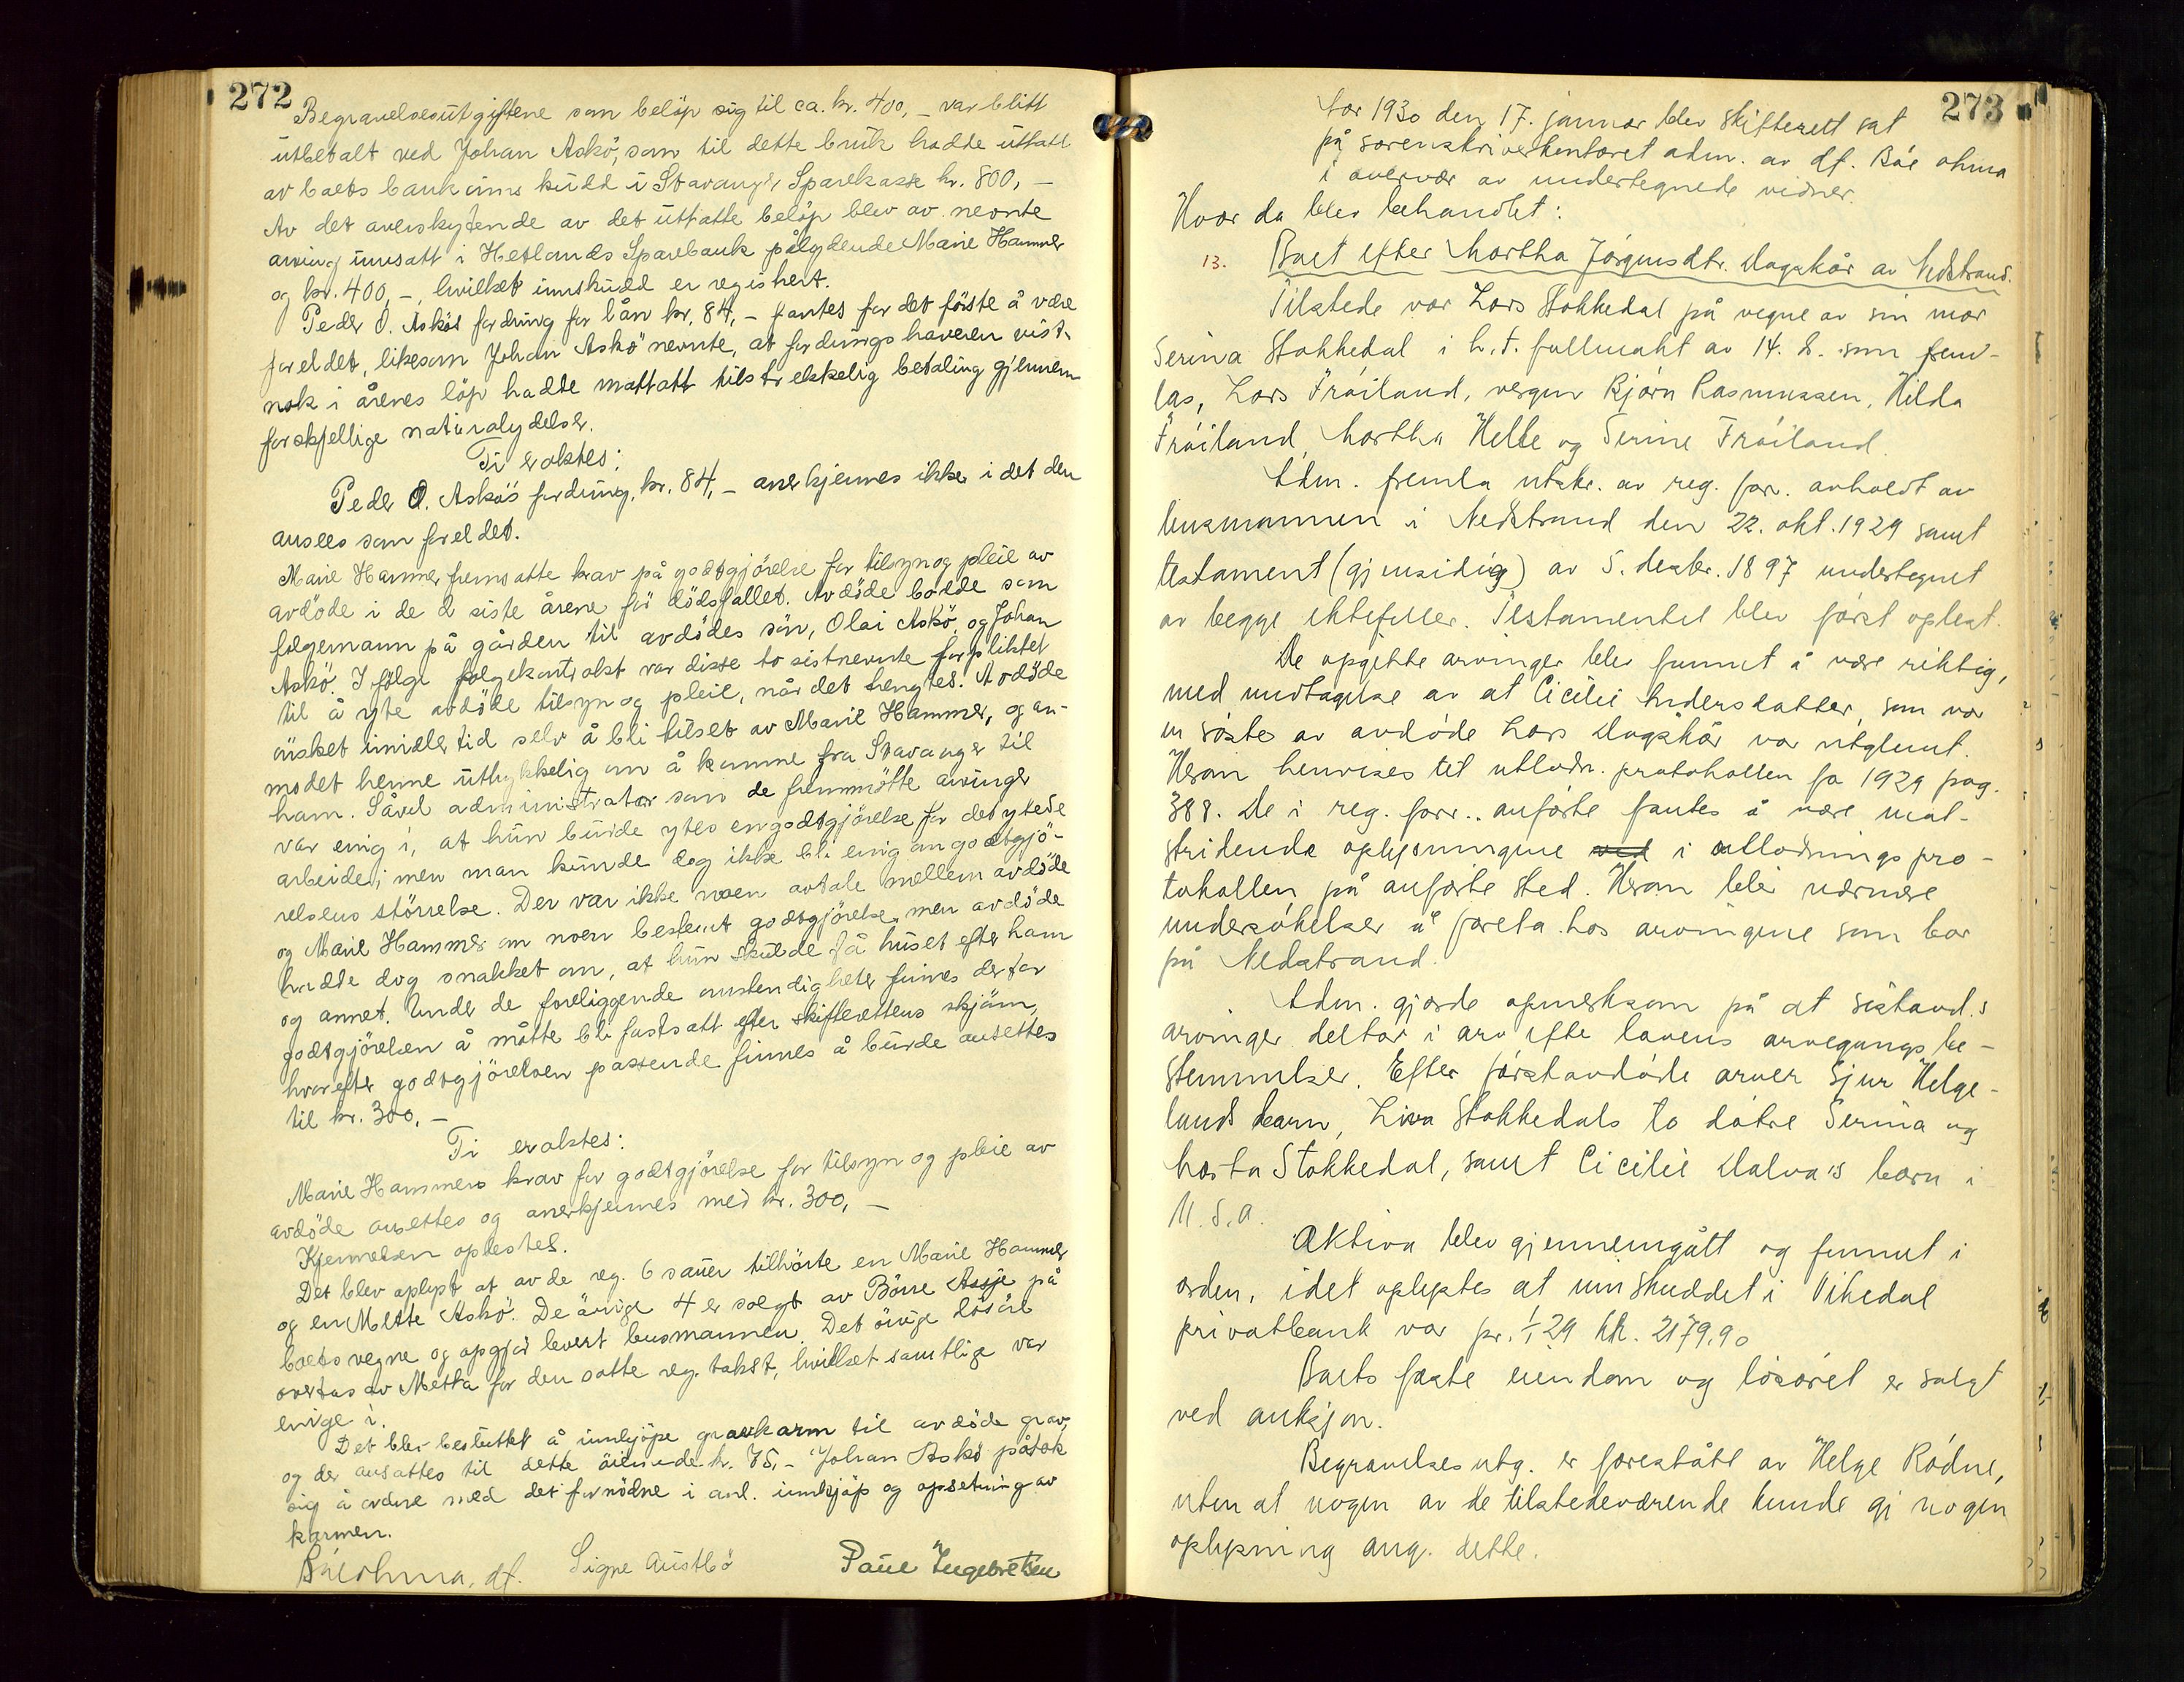 272
Begravelsesutgiftene som beløp sig til ca. kr. 400,- var blitt
utbetalt ved Johan Askö, som til dette bruk hadde uttatt
av boets bankinnskudd i Stavanger Sparekasse kr. 800,-
Av det overskytende av det uttatte beløp blev av nevnte
arving innsatt i Hetlands Sparebank pålydende Marie Hammer
og kr. 400,-, hvilket innskudd er registrert.
Peder O. Askös fordring for lån kr. 84,- fantes for det förste å være
foreldet, likesom Johan Askö nevnte, at fordringshaveren vist-
nok i årenes löp hadde mottatt tilstrekkelig betaling gjennem
forskjellige naturalydelser.
Ti eraktes:
Peder O. Askö's fordring, kr. 84,- anerkjennes ikke i det den
ansees som foreldet.
Marie Hammer fremsatte krav på godtgjörelse for tilsyn og pleie av
avdöde i de 2 siste årene för dödsfallet. Avdöde bodde som
følgemann på gården til avdödes sön, Olai Askö, og Johan
Askö. Ifölge folgekontrakt var disse to sistnevnte forpliktet
til å yte avdöde tilsyn og pleie, når det trengtes. Avdöde
önsket imidlertid selv å bli tilset av Marie Hammer, og an-
modet henne uttrykkelig om å komme fra Stavanger til
ham. Såvel administrator som de fremmötte arvinger
var enig i, at hun burde ytes en godtgjörelse for det ytede
arbeide; men man kunde dog ikke bli enig om godtgjö-
relsens störrelse. Der var ikke noen avtale mellem avdöde
og Marie Hammer om noen bestemt godtgjörelse, men avdöde
hadde dog snakket om, at hun skulde få huset efter ham
og annet. Under de foreliggende omstendigheter finnes derfor
godtgjörelsen å måtte bli fastsatt efter skifterettens skjönn,
hvorefter godtgjörelsen passende finnes å burde ansettes
til kr. 300,-
Ti eraktes:
Marie Hammers krav for godtgjörelse for tilsyn og pleie av
avdöde ansettes og anerkjennes med kr. 300,-
Kjennelsen oplestes.
Det blev oplyst at av de reg. 6 sauer tilhörte en Marie Hammer
og en Mette Askö. De övrige 4 er solgt av Börre Assje på
boets vegne og opgjör levert lensmannen. Det övrige lösöre
overtas av Metha for den satte reg. takst, hvilket samtlige var
enige i.
Det blev besluttet å innkjöpe gravkarm til avdöde grav,
og der ansattes til dette öiemed kr. 75,- Johan Askö påtok
sig å ordne med det fornödne i anl. innkjöp og opsetning av
karmen.
Böe ohma, df. Signe Austbö Paul Ingebretsen
273
År 1930 den 17. januar blev skifterett sat
på sorenskriverkontoret adm. av df. Böe ohma
i overvær av undertegnede vidner.
Hvor da blev behandlet:
13. Boet efter Martha Jörgensdtr. Dagskår av Nedstrand.
Tilstede var Lars Stokkedal på vegne av sin mor
Serina Stokkedal i h. t. fullmakt av 14. ds. som frem-
las, Lars Fröiland, vergen Bjørn Rasmussen, Hilda
Fröiland, Martha Helle og Serine Fröiland.
Adm. fremla utskr. av reg. forr. avholdt av
lensmannen i Nedstrand den 22. okt. 1929 samt
testament (gjensidig) av 5. desbr. 1897 undertegnet
av begge ektefeller. Testamentet blev först oplest.
De opgitte arvinger blev funnet å være riktig,
med undtagelse av at Cicilie Andersdatter, som var
en söster av avdöde Lars Dagskår var utglemt.
Herom henvises til utlodn. protokollen for 1929 pag.
388. De i reg. forr. anförte fantes å være mot-
stridende oplysningene ved i utlodningspro-
tokollen på anförte sted. Herom blev nærmere
undersökelser å foreta hos arvingene som bor
på Nedstrand.
Adm. gjorde opmerksom på at sistavd.s
arvinger deltar i arv efter lovens arvegangsbe-
stemmelser. Efter förstavdöde arver Sjur Helge-
lands barn, Liva Stokkedals to dötre Serina og
Marta Stokkedal, samt Cicilie Dalva's barn i
U.S.A.
Aktiva blev gjennemgått og funnet i
orden, idet oplystes at innskuddet i Vikedal
privatbank var pr. 1/1 29 kr. 2179.90
Boets faste eiendom og lösöret er solgt
ved auksjon.
Begravelsesutg. er forestått av Helge Rödne,
uten at nogen av de tilstedeværende kunde gi nogen
oplysning ang. dette.